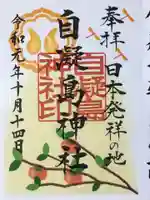 奉拝 日本発祥の地
自凝島神社
令和元年十月十四日